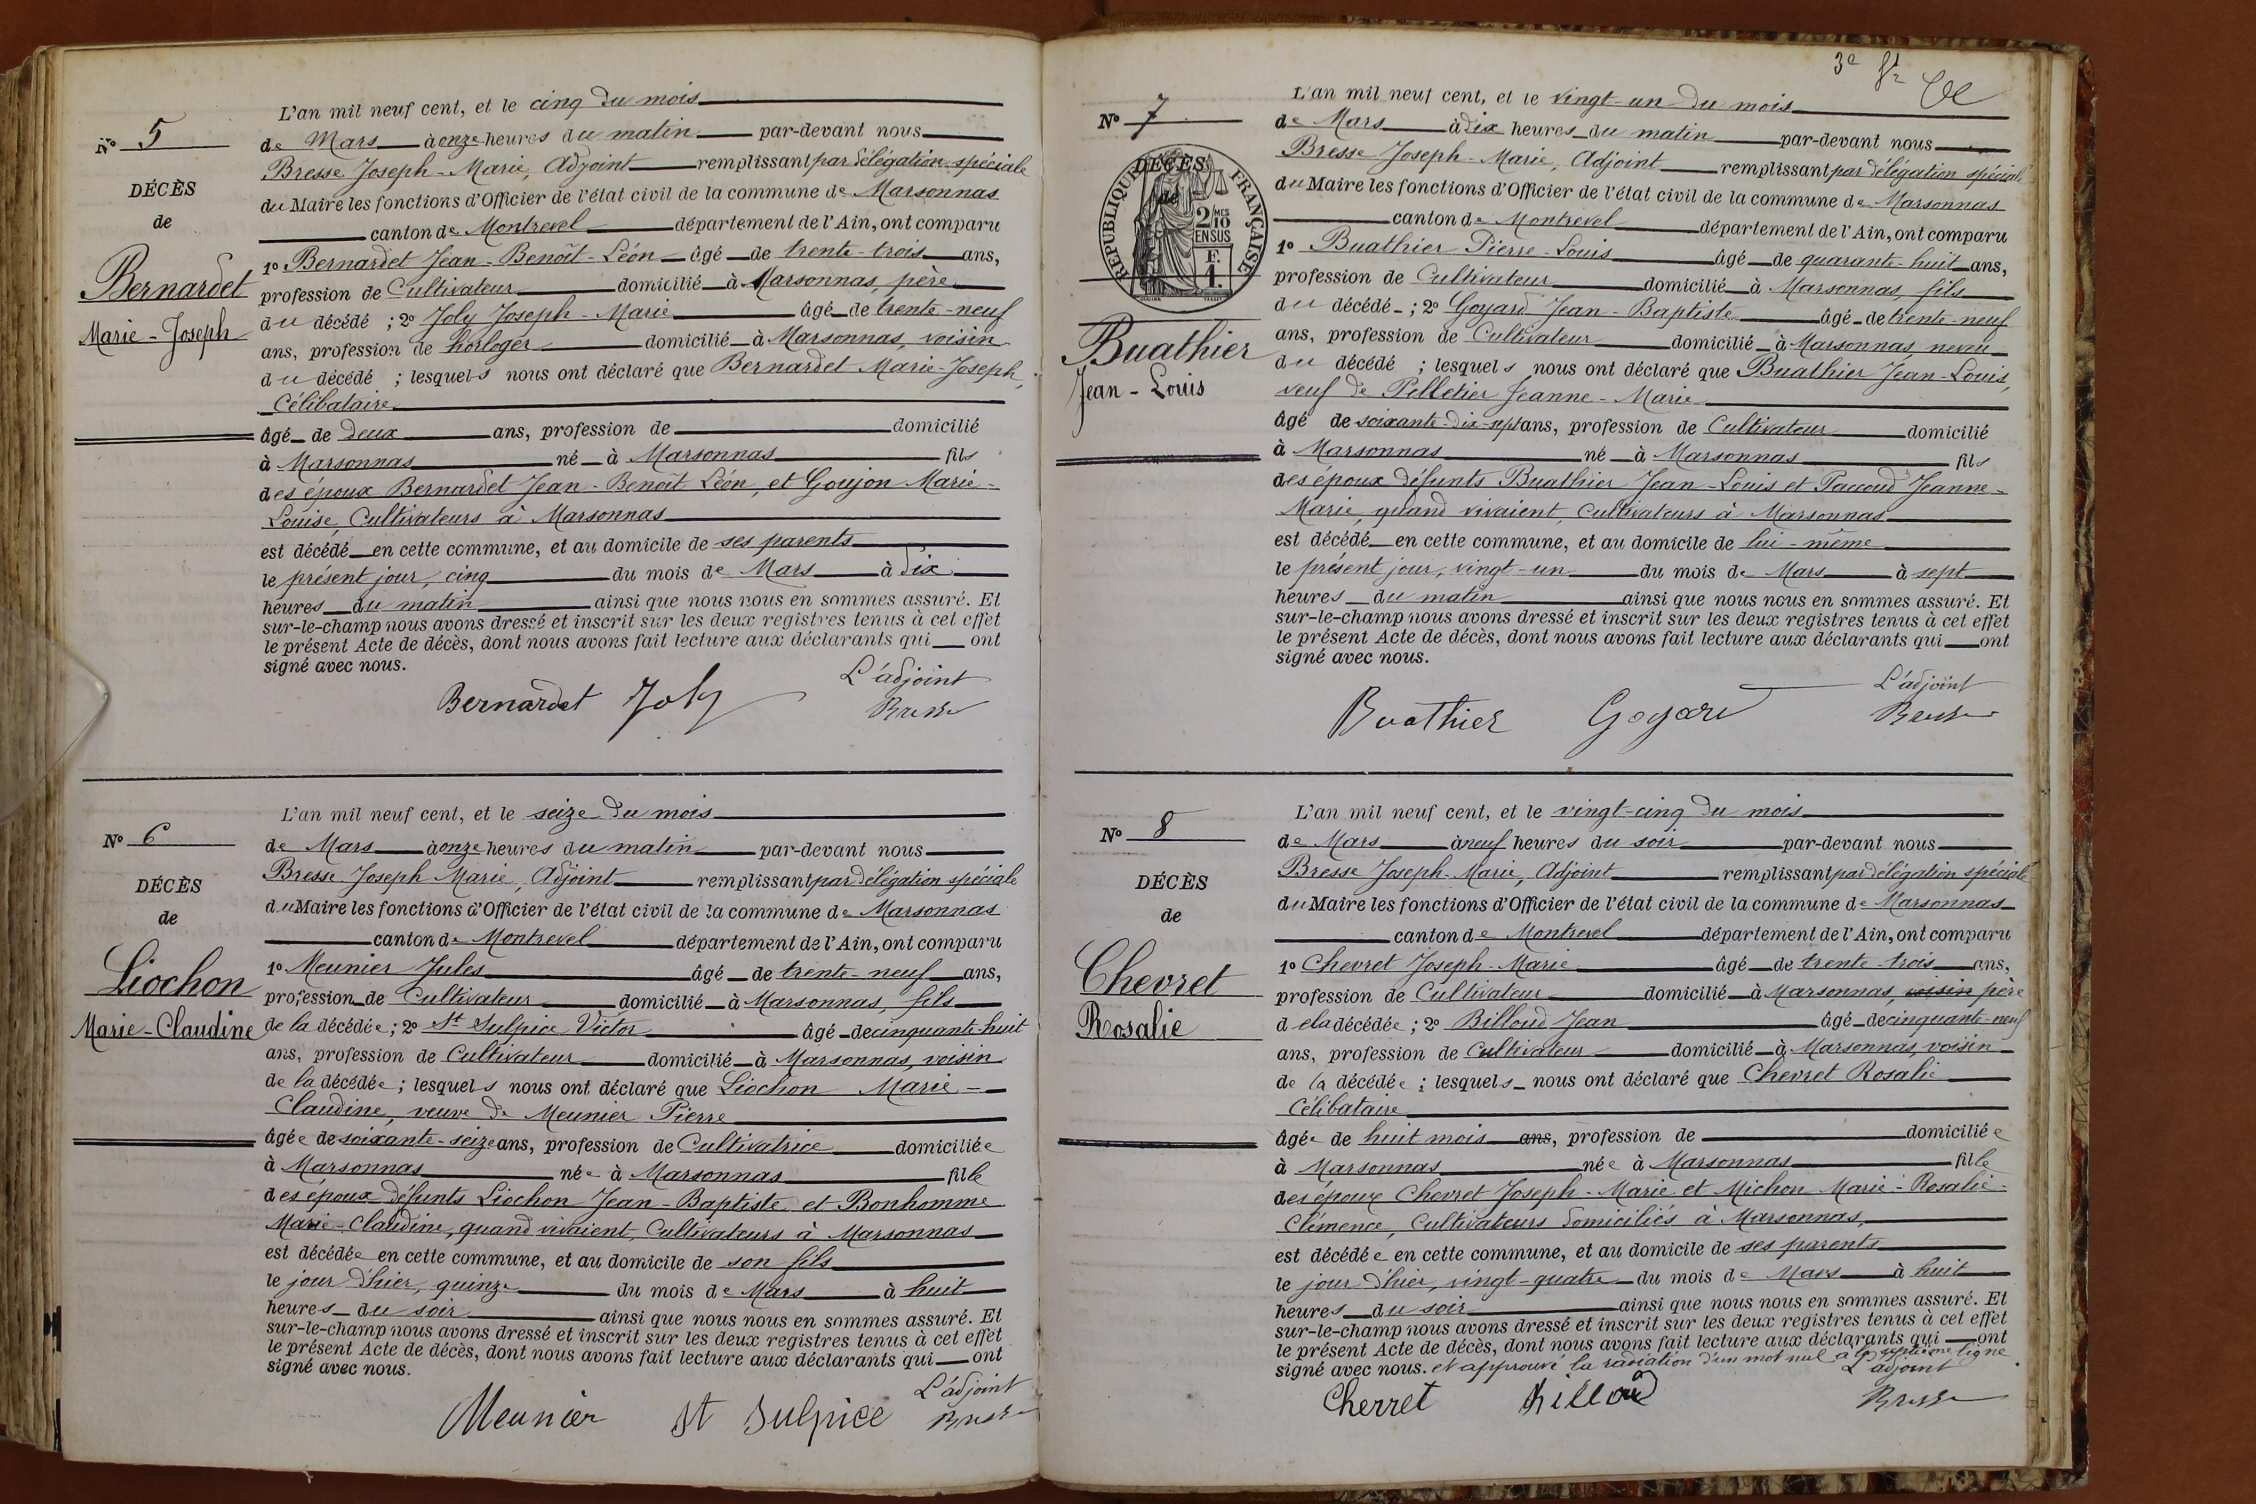 L'an mil neuf cent, et le cinq du mois
N° 5
de Mars à onze heures du matin par-devant nous
Bresse Joseph-Marie, Adjoint remplissant par délégation spéciale
DÉCÈS
du Maire les fonctions d'Officier de l'état civil de la commune de Marsonnas
de
canton de Montrevel département de l'Ain, ont comparu
1° Bernardet Jean-Benoît-Léon âgé de trente-trois ans,
Bernardet
profession de Cultivateur domicilié à Marsonnas, père
du décédé ; 2° Joly Joseph-Marie âgé de trente-neuf
Marie-Joseph
ans, profession de horloger domicilié à Marsonnas, voisin
du décédé ; lesquels nous ont déclaré que Bernardet Marie-Joseph,
Célibataire
âgé de deux ans, profession de domicilié
à Marsonnas né à Marsonnas fils
des époux Bernardet Jean-Benoît Léon, et Goujon Marie-
Louise, Cultivateurs à Marsonnas
est décédé en cette commune, et au domicile de ses parents
le présent jour, cinq du mois de Mars à dix
heures du matin ainsi que nous nous en sommes assuré. Et
sur-le-champ nous avons dressé et inscrit sur les deux registres tenus à cet effet
le présent Acte de décès, dont nous avons fait lecture aux déclarants qui ont
signé avec nous.
L'adjoint
Bernardet Joly Bresse
L'an mil neuf cent, et le seize du mois
N° 6
de Mars à onze heures du matin par-devant nous
Bresse Joseph Marie, Adjoint remplissant par délégation spéciale
DÉCÈS
du Maire les fonctions d'Officier de l'état civil de la commune de Marsonnas
de
canton de Montrevel département de l'Ain, ont comparu
1° Meunier Jules âgé de trente-neuf ans,
Liochon
profession de Cultivateur domicilié à Marsonnas, fils
Marie-Claudine
de la décédée ; 2° St Sulpice Victor âgé de cinquante-huit
ans, profession de Cultivateur domicilié à Marsonnas, voisin
de la décédée ; lesquels nous ont déclaré que Liochon Marie-
Claudine, veuve de Meunier Pierre
âgée de soixante-seize ans, profession de Cultivatrice domiciliée
à Marsonnas née à Marsonnas fille
des époux défunts Liochon Jean-Baptiste et Bonhomme
Marie-Claudine, quand vivaient, Cultivateurs à Marsonnas
est décédée en cette commune, et au domicile de son fils
le jour d'hier, quinze du mois de Mars à huit
heures du soir ainsi que nous nous en sommes assuré. Et
sur-le-champ nous avons dressé et inscrit sur les deux registres tenus à cet effet
le présent Acte de décès, dont nous avons fait lecture aux déclarants qui ont
signé avec nous.
L'adjoint
Meunier St Sulpice Bresse
3e
L'an mil neuf cent, et le vingt-un du mois
N° 7
de Mars à dix heures du matin par-devant nous
Bresse Joseph-Marie, Adjoint remplissant par délégation spéciale
DÉCÈS
de
RÉPUBLIQUE FRANÇAISE
2/10 MES
EN SUS
F.
1.
du Maire les fonctions d'Officier de l'état civil de la commune de Marsonnas
canton de Montrevel département de l'Ain, ont comparu
1° Buathier Pierre-Louis âgé de quarante-huit ans,
profession de Cultivateur domicilié à Marsonnas, fils
du décédé ; 2° Goyard Jean-Baptiste âgé de trente-neuf
Buathier
ans, profession de Cultivateur domicilié à Marsonnas, neveu
Jean-Louis
du décédé ; lesquels nous ont déclaré que Buathier Jean-Louis,
veuf de Pelletier Jeanne-Marie
âgé de soixante-dix-sept ans, profession de Cultivateur domicilié
à Marsonnas né à Marsonnas fils
des époux défunts Buathier Jean-Louis et Pacoud Jeanne-
Marie, quand vivaient, Cultivateurs à Marsonnas
est décédé en cette commune, et au domicile de lui-même
le présent jour, vingt-un du mois de Mars à sept
heures du matin ainsi que nous nous en sommes assuré. Et
sur-le-champ nous avons dressé et inscrit sur les deux registres tenus à cet effet
le présent Acte de décès, dont nous avons fait lecture aux déclarants qui ont
signé avec nous.
L'adjoint
Buathier Goyard Bresse
L'an mil neuf cent, et le vingt-cinq du mois
N° 8
de Mars à neuf heures du soir par-devant nous
Bresse Joseph-Marie, Adjoint remplissant par délégation spéciale
DÉCÈS
du Maire les fonctions d'Officier de l'état civil de la commune de Marsonnas
de
canton de Montrevel département de l'Ain, ont comparu
1° Chevret Joseph-Marie âgé de trente-trois ans,
Chevret
profession de Cultivateur domicilié à Marsonnas, voisin père
Rosalie
de la décédée ; 2° Billoud Jean âgé de cinquante-neuf
ans, profession de Cultivateur domicilié à Marsonnas, voisin
de la décédée ; lesquels nous ont déclaré que Chevret Rosalie
Célibataire
âgée de huit mois ans, profession de domiciliée
à Marsonnas née à Marsonnas fille
des époux Chevret Joseph-Marie et Michon Marie-Rosalie-
Clémence, Cultivateurs domiciliés à Marsonnas,
est décédée en cette commune, et au domicile de ses parents
le jour d'hier, vingt-quatre du mois de Mars à huit
heures du soir ainsi que nous nous en sommes assuré. Et
sur-le-champ nous avons dressé et inscrit sur les deux registres tenus à cet effet
le présent Acte de décès, dont nous avons fait lecture aux déclarants qui ont
signé avec nous. et approuvé la radiation d'un mot nul à la septième ligne
L'adjoint
Chevret Billoud Bresse